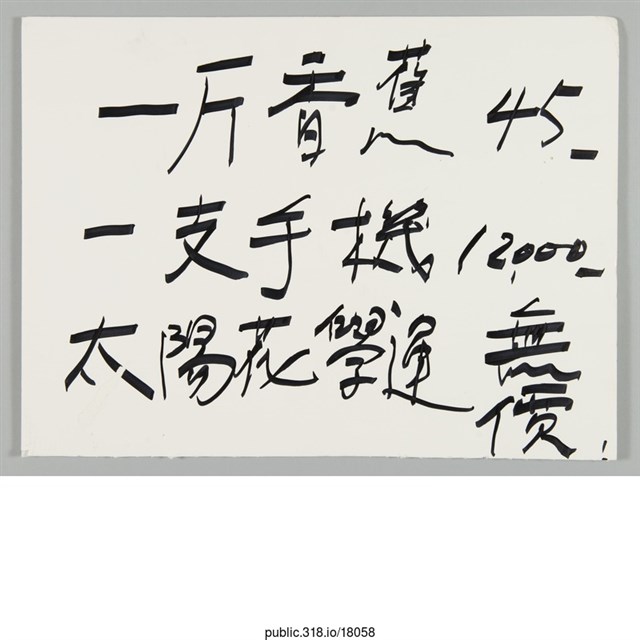 一斤香蕉 45_
一支手機 12,000_
太陽花學運 無價!
public.318.io/18058